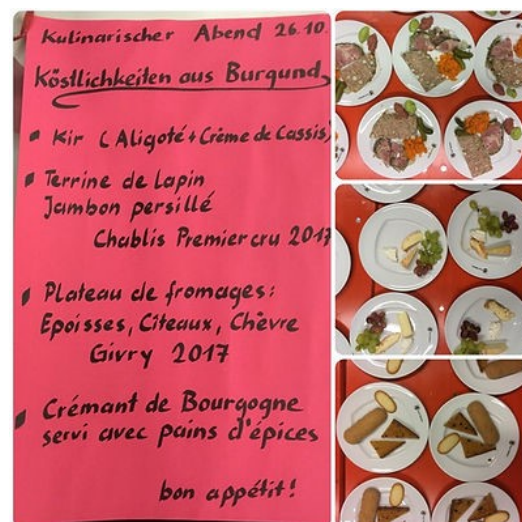 Kulinarischer Abend 26.10.
Köstlichkeiten aus Burgund
Kir (Aligoté + Crème de Cassis)
Terrine de Lapin
Jambon persillé
Chablis Premier cru 2017
Plateau de fromages:
Epoisses, Cîteaux, Chèvre
Givry 2017
Crémant de Bourgogne
servi avec pains d'épices
bon appétit!